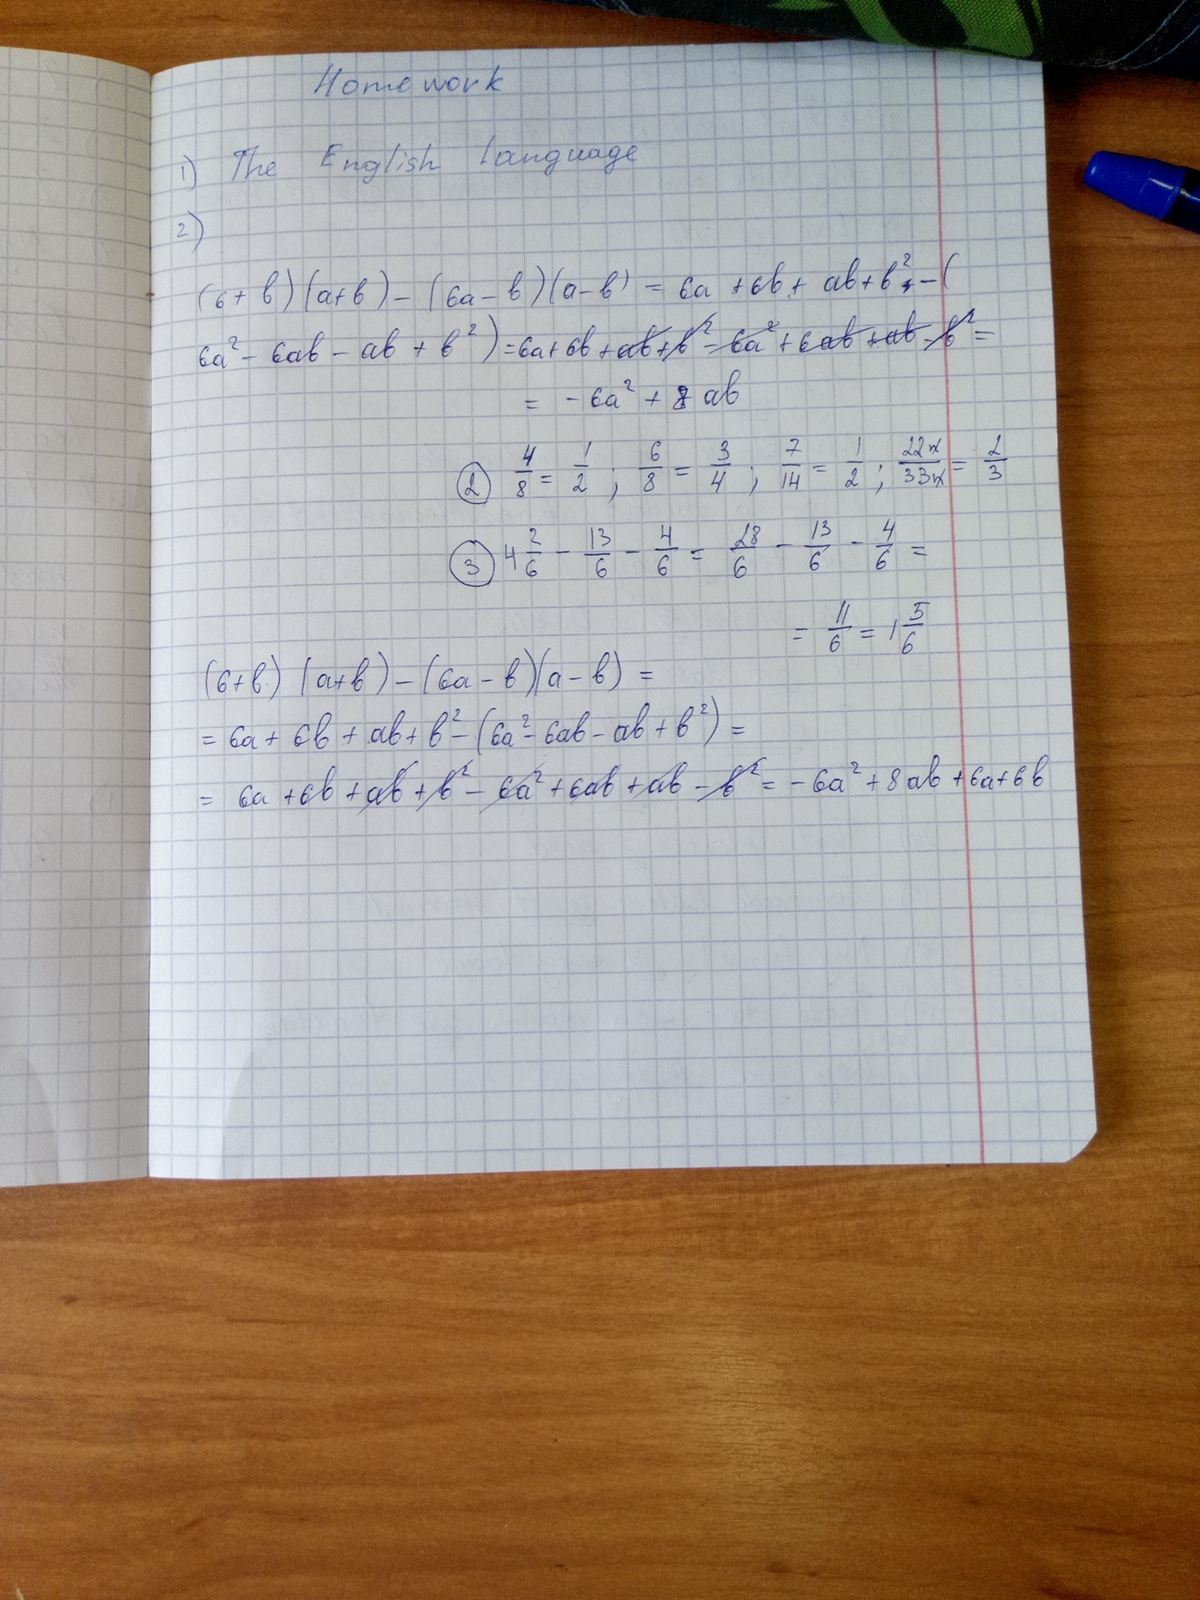 Homework
1) The English language
2)
(6+b)(a+b)-(6a-b)(a-b) = 6a+6b+ab+b²-(
6a²-6ab-ab+b²)=6a+6b+ab+b²-6a²+6ab+ab-b²=
= -6a²+8ab
② 4/8 = 1/2; 6/8 = 3/4; 7/14 = 1/2; 22x/33x = 2/3
③ 4 2/6 - 13/6 - 4/6 = 28/6 - 13/6 - 4/6 =
= 11/6 = 1 5/6
(6+b)(a+b)-(6a-b)(a-b) =
= 6a+6b+ab+b²-(6a²-6ab-ab+b²)=
= 6a+6b+ab+b²-6a²+6ab+ab-b²=-6a²+8ab+6a+6b